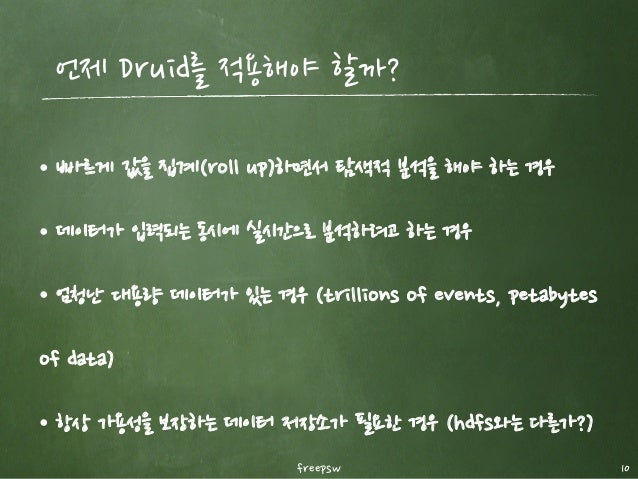 언제 Druid를 적용해야 할까?
• 빠르게 값을 집계(roll up)하면서 탐색적 분석을 해야 하는 경우
• 데이터가 입력되는 동시에 실시간으로 분석하려고 하는 경우
• 엄청난 대용량 데이터가 있는 경우 (trillions of events, petabytes
of data)
• 항상 가용성을 보장하는 데이터 저장소가 필요한 경우 (hdfs와는 다른가?)
freepsw
10